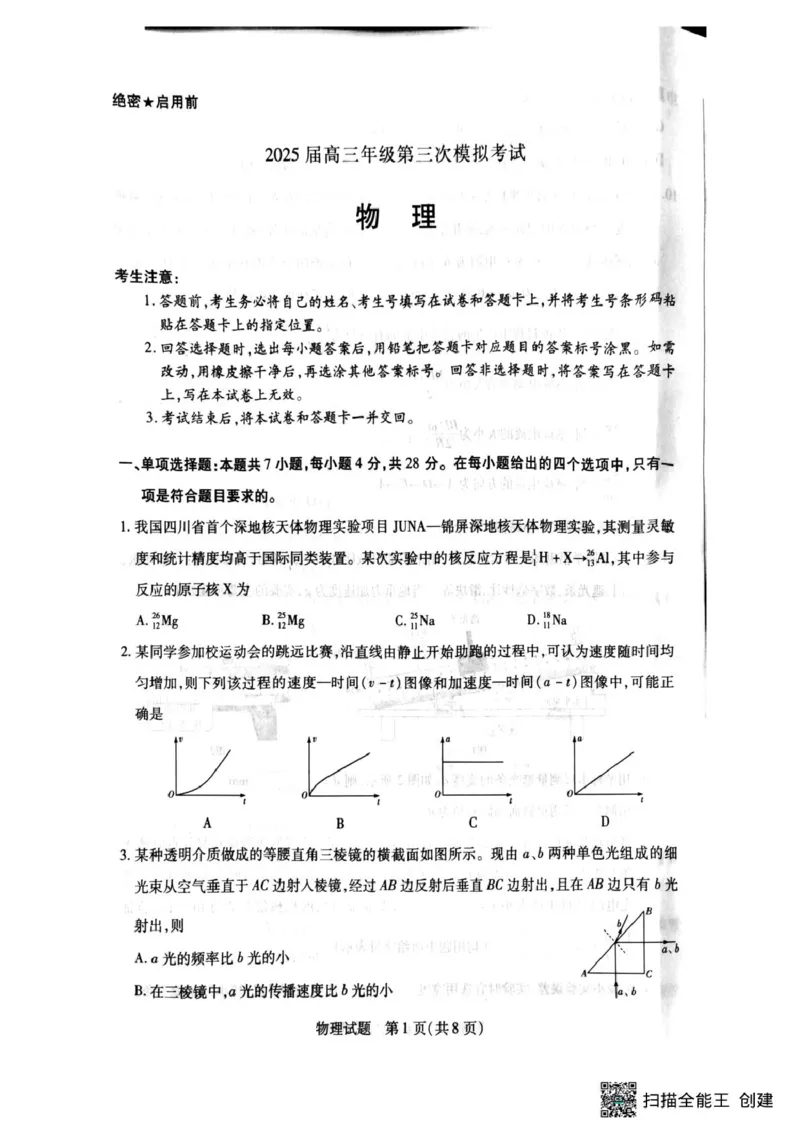 绝密★启用前
2025 届高三年级第三次模拟考试
物 理
考生注意:
1.答题前,考生务必将自己的姓名、考生号填写在试卷和答题卡上,并将考生号条形码粘
贴在答题卡上的指定位置。
2.回答选择题时,选出每小题答案后,用铅笔把答题卡对应题目的答案标号涂黑。如需
改动,用橡皮擦干净后,再选涂其他答案标号。回答非选择题时,将答案写在答题卡
上,写在本试卷上无效。
3.考试结束后,将本试卷和答题卡一并交回。
一、单项选择题:本题共 7 小题,每小题 4 分,共 28 分。在每小题给出的四个选项中,只有一
项是符合题目要求的。
1.我国四川省首个深地核天体物理实验项目 JUNA—锦屏深地核天体物理实验,其测量灵敏
度和统计精度均高于国际同类装置。某次实验中的核反应方程是 ¹₁H + X→²⁶₁₃Al,其中参与
反应的原子核 X 为
A. ²⁶₁₂Mg B. ²⁵₁₂Mg C. ²⁵₁₁Na D. ¹⁸₁₁Na
2.某同学参加校运动会的跳远比赛,沿直线由静止开始助跑的过程中,可认为速度随时间均
匀增加,则下列该过程的速度—时间(v-t)图像和加速度—时间(a-t)图像中,可能正
确是
v v a a
O t O t O t O t
A B C D
3.某种透明介质做成的等腰直角三棱镜的横截面如图所示。现由 a、b 两种单色光组成的细
光束从空气垂直于 AC 边射入棱镜,经过 AB 边反射后垂直 BC 边射出,且在 AB 边只有 b 光
射出,则
A. a 光的频率比 b 光的小
B. 在三棱镜中,a 光的传播速度比 b 光的小
B
b
a、b
A C
a、b
物理试题 第 1 页(共 8 页)
扫描全能王 创建